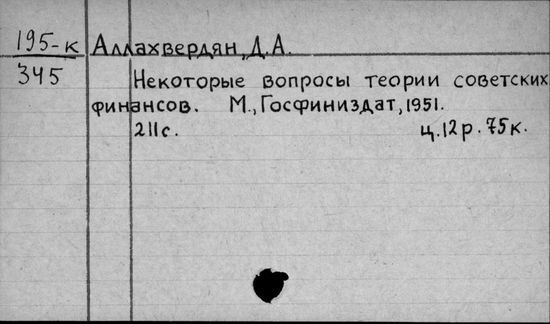 195-к Аллахвердян, Д.А.
345 Некоторые вопросы теории советских
финансов. М., Госфиниздат, 1951.
211с. ц.12р.75к.